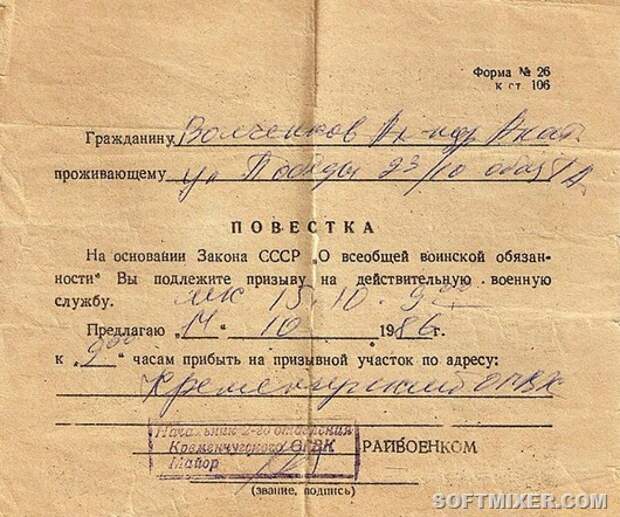 Форма № 26
к ст. 106
Гражданину Волченков Ал-ндр Анат
проживающему ул Победы 23/10 общ
ПОВЕСТКА
На основании Закона СССР „О всеобщей воинской обязан-
ности" Вы подлежите призыву на действительную военную
службу. 15.10. 9 00
Предлагаю „14" 10 1986г.
к „9 00" часам прибыть на призывной участок по адресу:
Кременчугский ОГВК
Начальник 2-го отделения
Кременчугского ОГВК РАЙВОЕНКОМ
Майор
(звание, подпись)
SOFTMIXER.COM